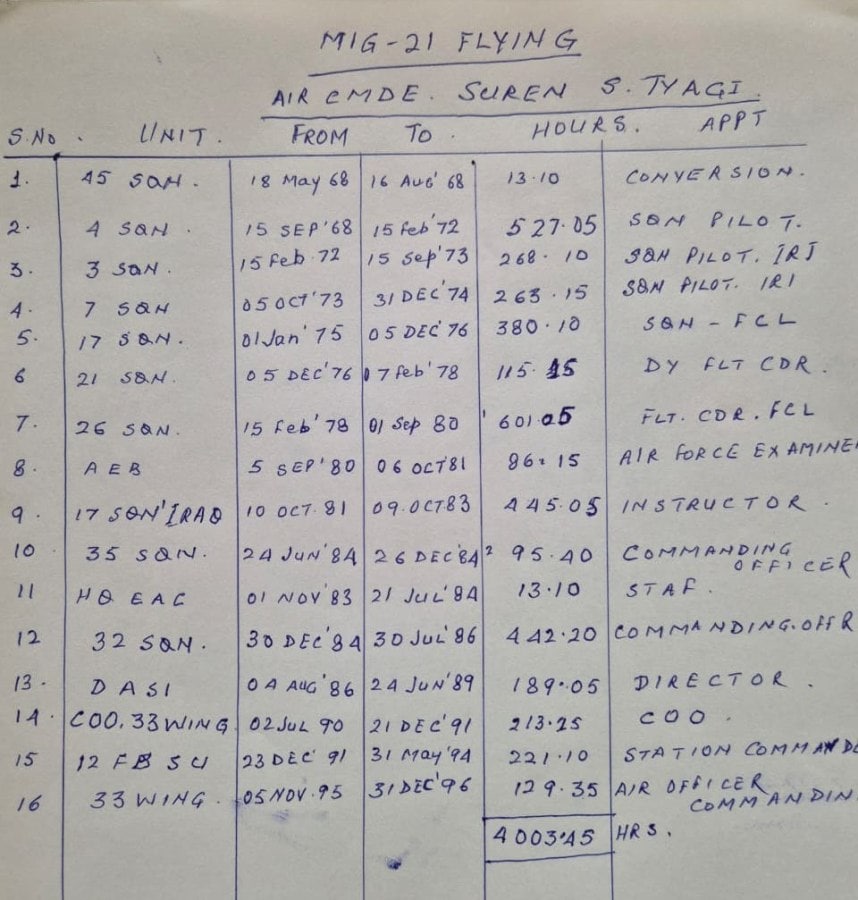 MIG-21 FLYING
AIR CMDE. SUREN S. TYAGI.
S.NO. UNIT. FROM TO. HOURS. APPT
1. 45 SQN. 18 May 68 16 AUG' 68 13.10 CONVERSION.
2. 4 SQN. 15 SEP'68 15 Feb'72 527.05 SQN PILOT.
3. 3 SQN. 15 Feb.72 15 Sep'73 268.10 SQN PILOT. IRI
4. 7 SQN 05 OCT'73 31 DEC'74 263.15 SQN PILOT. IRI
5. 17 SQN. 01 Jan'75 05 DEC'76 380.10 SQN - FCL
6 21 SQN. 05 DEC'76 07 Feb'78 115.15 DY FLT CDR.
7. 26 SQN. 15 Feb'78 01 Sep 80 601.05 FLT. CDR. FCL
8. AEB 5 SEP'80 06 OCT81 86.15 AIR FORCE EXAMINE
9. 17 SQN'IRAQ 10 OCT.81 09.OCT83 445.05 INSTRUCTOR.
10 35 SQN. 24 JUN'84 26 DEC'84 95.40 COMMANDING
OFFICER
11 HQ EAC 01 NOV'83 21 JUL'84 13.10 STAF.
12 32 SQN. 30 DEC'84 30 JUL'86 442.20 COMMANDING.OFFR
13. DASI 04 AUG'86 24 JUN'89 189.05 DIRECTOR.
14. COO, 33 WING 02 JUL 90 21 DEC'91 213.25 COO.
15 12 FBSU 23 DEC' 91 31 May'94 221.10 STATION COMMAND
16 33 WING. 05 NOV.95 31 DEC'96 129.35 AIR OFFICER
COMMANDIN
4003.45 HRS.